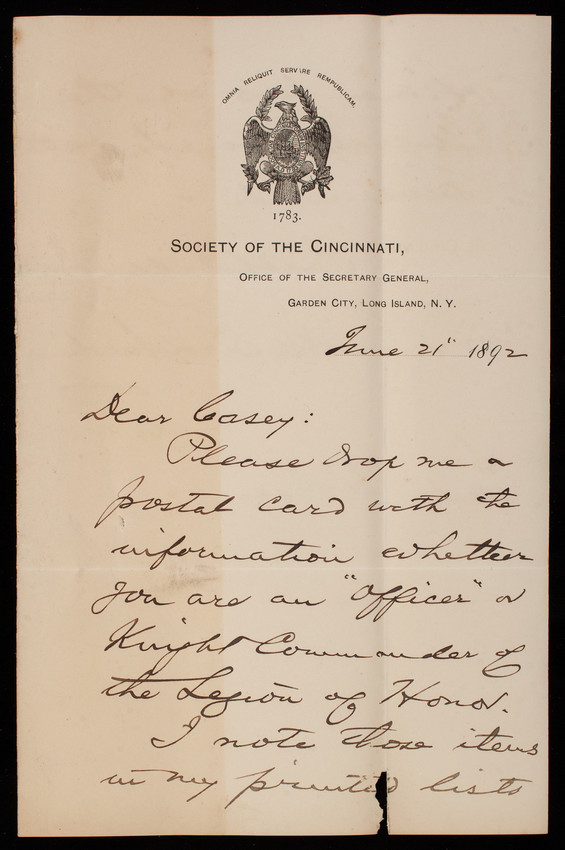 OMNIA RELIQUIT SERVARE REMPUBLICAM.
1783.
SOCIETY OF THE CINCINNATI,
OFFICE OF THE SECRETARY GENERAL,
GARDEN CITY, LONG ISLAND, N. Y.
June 21" 1892
Dear Casey:
Please drop me a
postal card with the
information whether
you are an "Officer" or
Knight Commander of
the Legion of Honor.
I note those items
in my printed lists